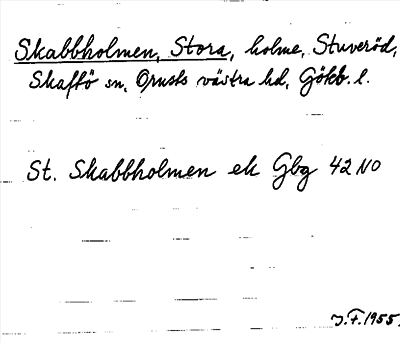 Skabbholmen, Stora, holme, Stuveröd,
Skaftö sn, Orusts västra hd, Gökb. l.
St. Skabbholmen ek Gbg 42 NO
J.F. 1955.